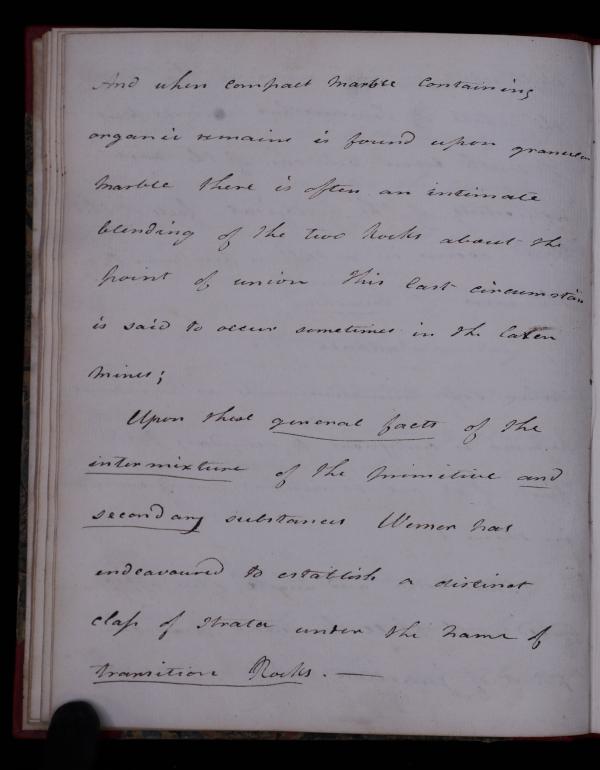 And when compact marble containing
organic remains is found upon granular
marble there is often an intimate
blending of the two Rocks about the
point of union This last circumstan
is said to occur sometimes in the
mines;
Upon these general facts of the
intermixture of the primitive and
secondary substances Werner has
endeavoured to establish a distinct
class of strata under the name of
transition Rocks. —